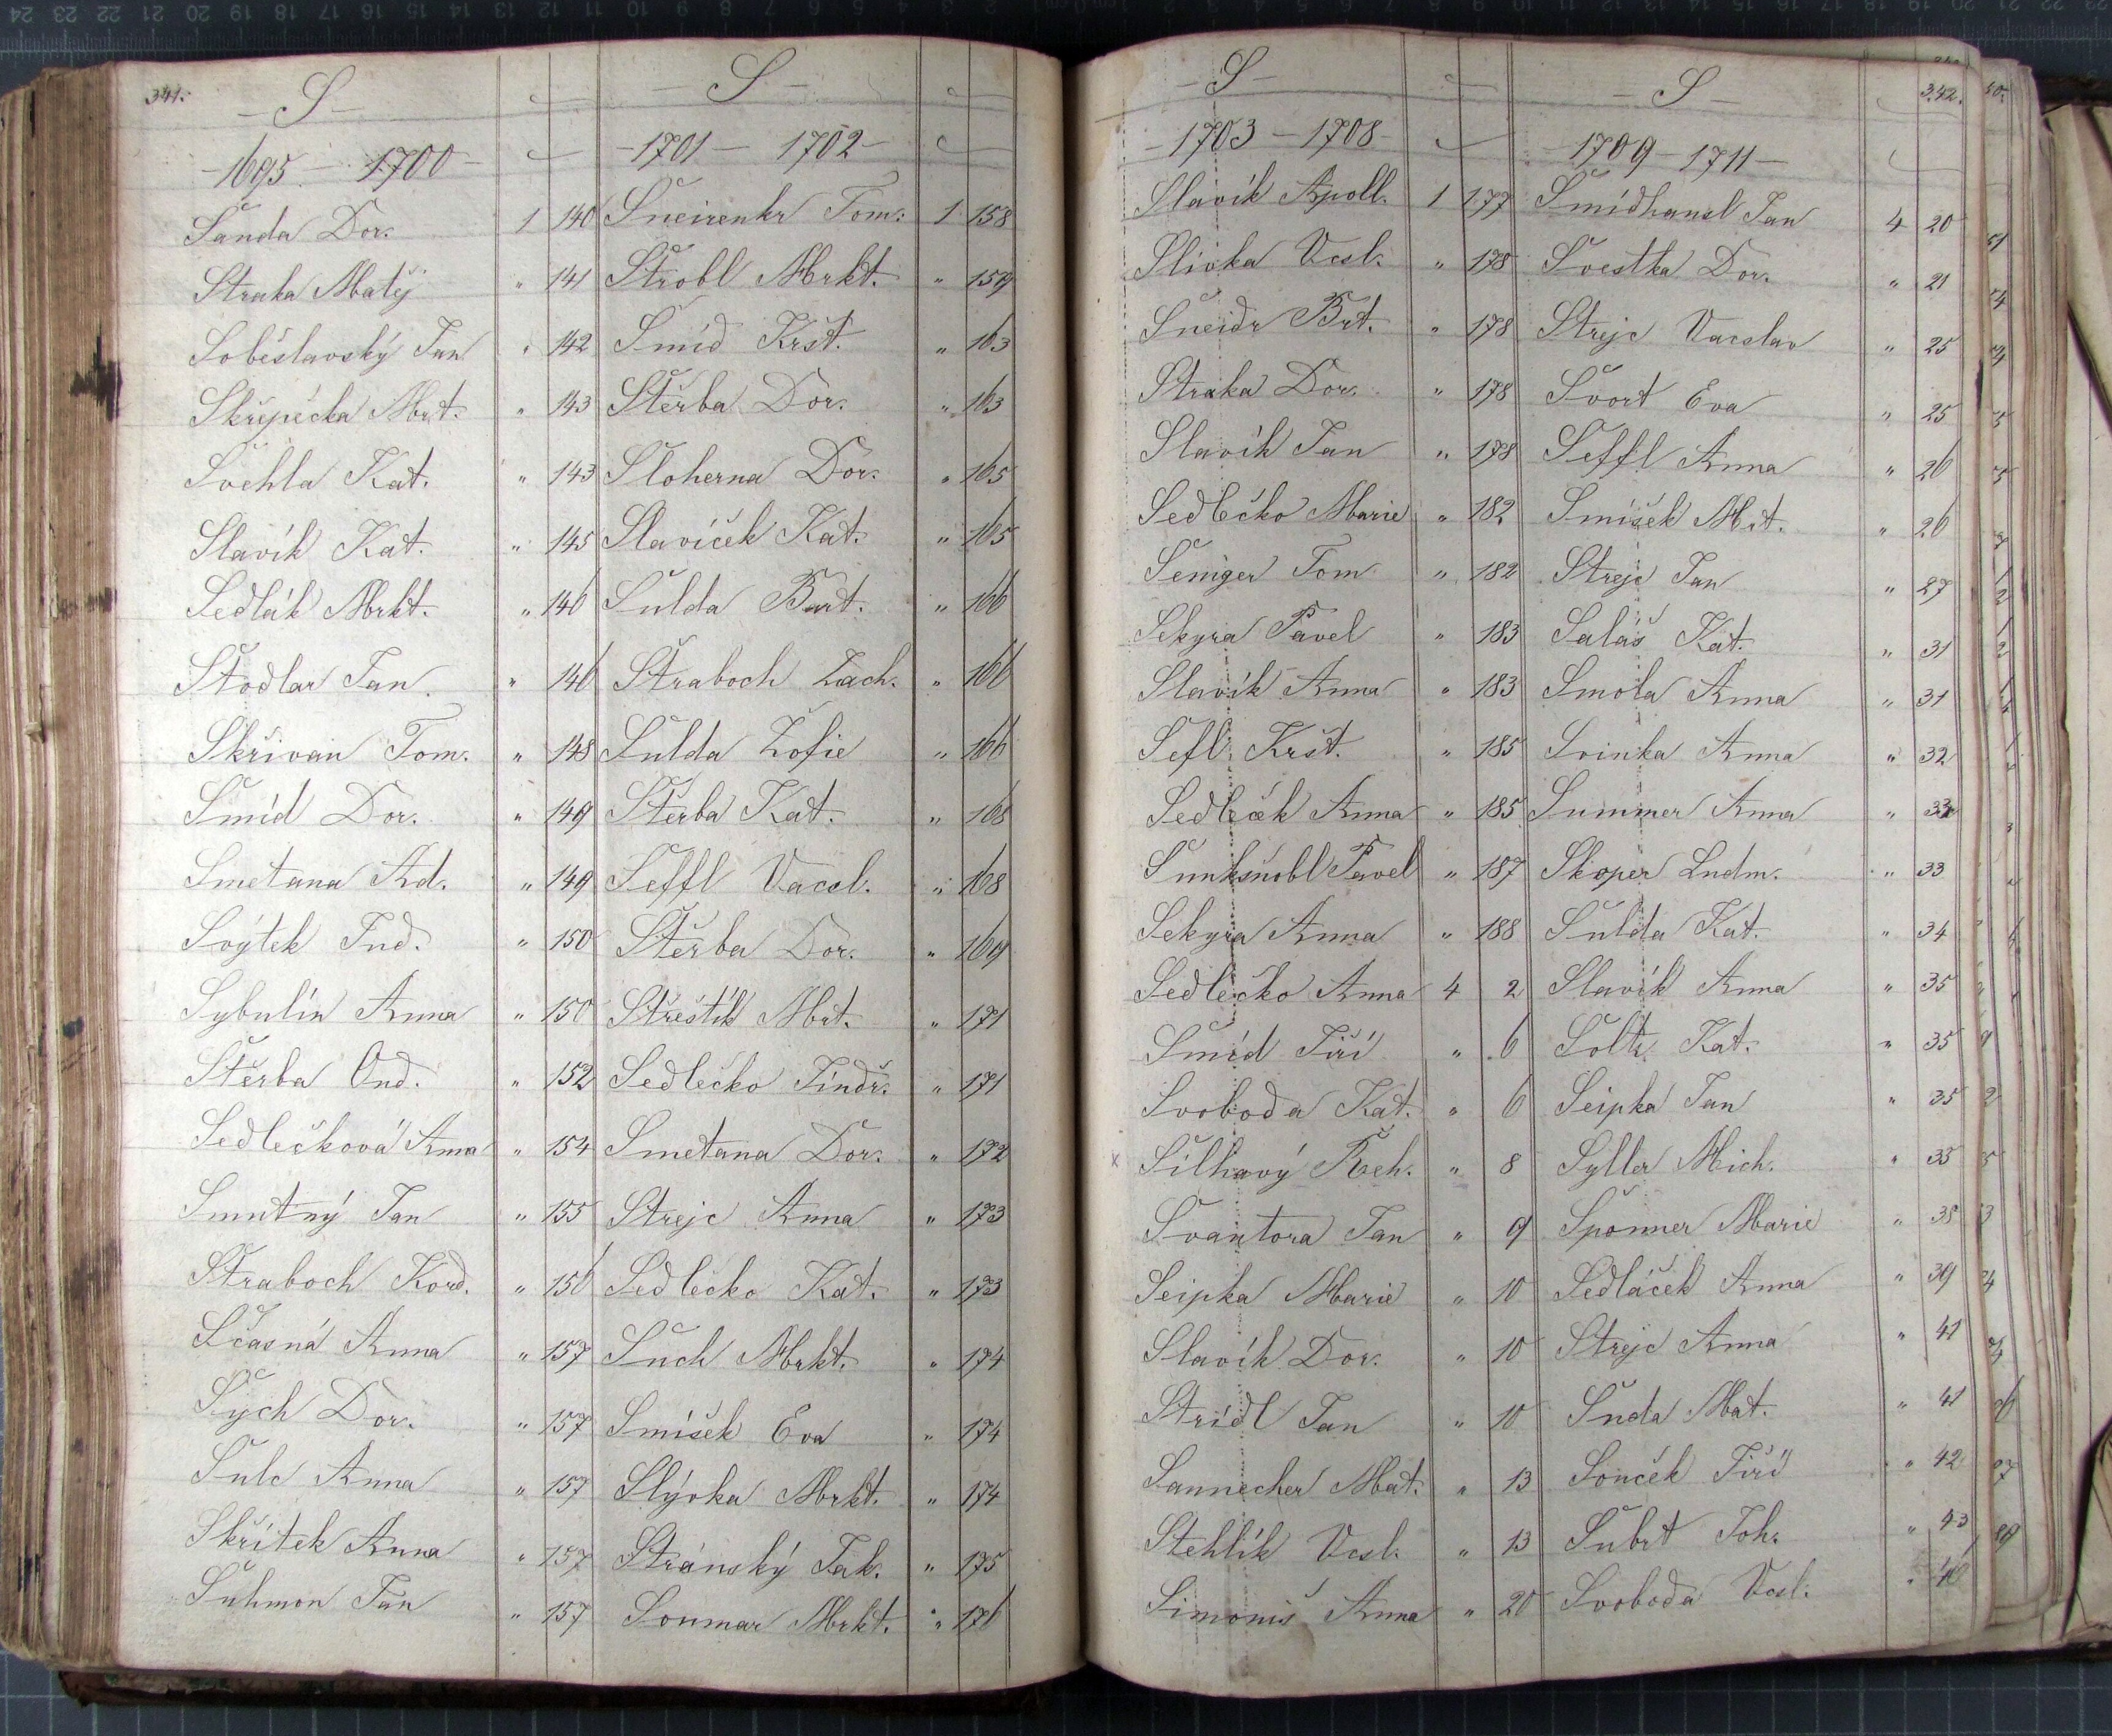 341.
— S —
— 1695 — 1700 —
Šanda Dor. 1 140
Straka Matěj " 141
Soběslavský Jan " 142
Skřepečka Mrt. " 143
Švehla Kat. " 143
Slavík Kat. " 145
Sedlák Mrkt. " 146
Stodlar Jan. " 146
Skřivan Tom. " 148
Šmíd Dor. " 149
Smetana Ad. " 149
Svýtek Jnd. " 150
Sybulín Anna " 150
Štěrba Ond. " 152
Sedlečková Anna " 154
Smutný Jan " 155
Straboch Kord. " 156
Sčasná Anna " 157
Šych Dor. " 157
Šulc Anna " 157
Skřítek Anna " 157
Šuhmon Jan " 157
— S —
— 1701 — 1702 —
Šneirenkr Tom. 1 158
Štrobl Mrkt. " 159
Šmíd Kršt. " 163
Štěrba Dor. " 163
Sloherna Dor. " 165
Slavíček Kat. " 165
Šulda Bart. " 166
Straboch Zach. " 166
Šulda Žofie " 166
Štěrba Kat. " 168
Šeffl Vacsl. " 168
Štěrba Dor. " 169
Střeštík Mrt. " 171
Sedlečko Jindř. " 171
Smetana Dor. " 172
Strejc Anna " 173
Sedlečko Kat. " 173
Šuch Mrkt. " 174
Smíšek Eva " 174
Slývka Mrkt. " 174
Stránský Jak. " 175
Soumar Mrkt. " 176
— S —
— 1703 — 1708 —
Slavík Apoll. 1 177
Slivka Vcsl. " 178
Šneidr Brt. " 178
Straka Dor. " 178
Slavík Jan " 178
Sedlečko Marie " 182
Šeniger Tom " 182
Sekyra Pavel " 183
Slavík Anna " 183
Šefl Kršt. " 185
Sedleček Anna " 185
Pavel " 187
Sekyra Anna " 188
Sedlečko Anna 4 2
Šmíd Jiří " 6
Svoboda Kat. " 6
x Šilhavý Řeh. " 8
Švantora Jan " 9
Seipka Marie " 10
Slavík Dor. " 10
Strídl Jan " 10
Sannecher Mat. " 13
Stehlík Vcsl. " 13
Simoniš Anna " 20
— S — 342.
— 1709 — 1711 —
Šmídhansl Jan 4 20
Švestka Dor. " 21
Strejc Vacslav " 25
Švort Eva " 25
Šeffl Anna " 26
Smíšek Mrt. " 26
Strejc Jan " 27
Salaš Kat. " 31
Smola Anna " 31
Svinka Anna " 32
Summer Anna " 33
Skoper Ludm. " 33
Šulda Kat. " 34
Slavík Anna " 35
Šoltz Kat. " 35
Seipka Jan " 35
Syller Mich. " 35
Šponner Marie " 38
Sedláček Anna " 39
Strejc Anna " 41
Šuda Mat. " 41
Souček Jiří " 42
Šubrt Joh. " 43
Svoboda Vcsl. " 46